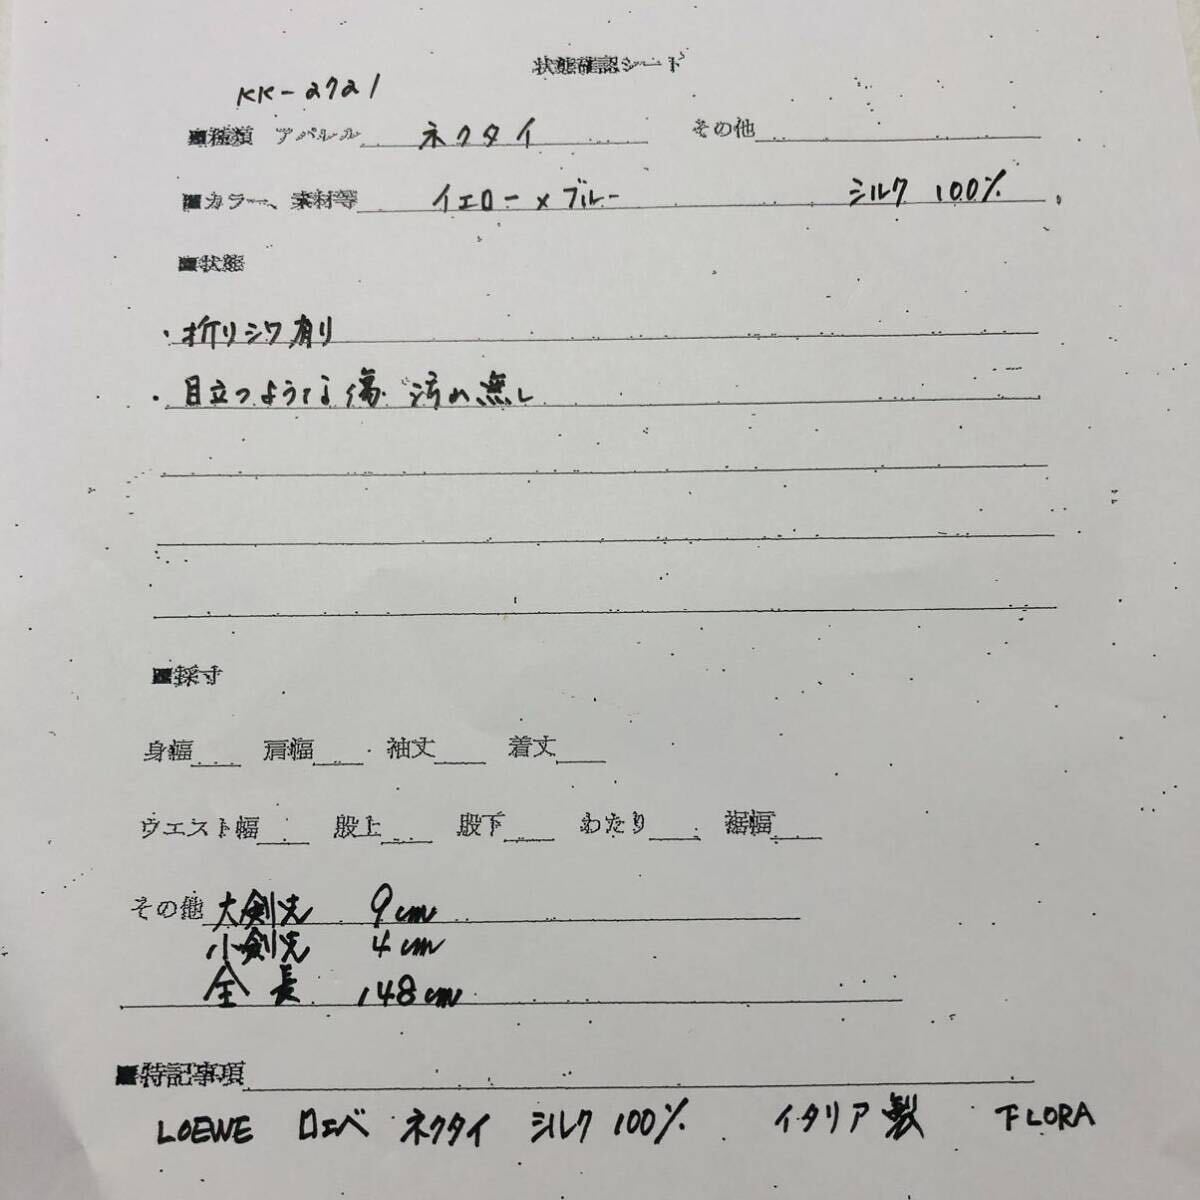 状態確認シート
KK-2721
■種類 アパレル ネクタイ その他
■カラー、素材等 イエロー×ブルー シルク 100%
■状態
・折りシワ有り
・目立つような傷 汚め無し
■採寸
身幅 肩幅 袖丈 着丈
ウエスト幅 股上 股下 わたり 裾幅
その他 大剣先 9cm
小剣先 4cm
全長 148cm
■特記事項
LOEWE ロエベ ネクタイ シルク 100% イタリア製 FLORA